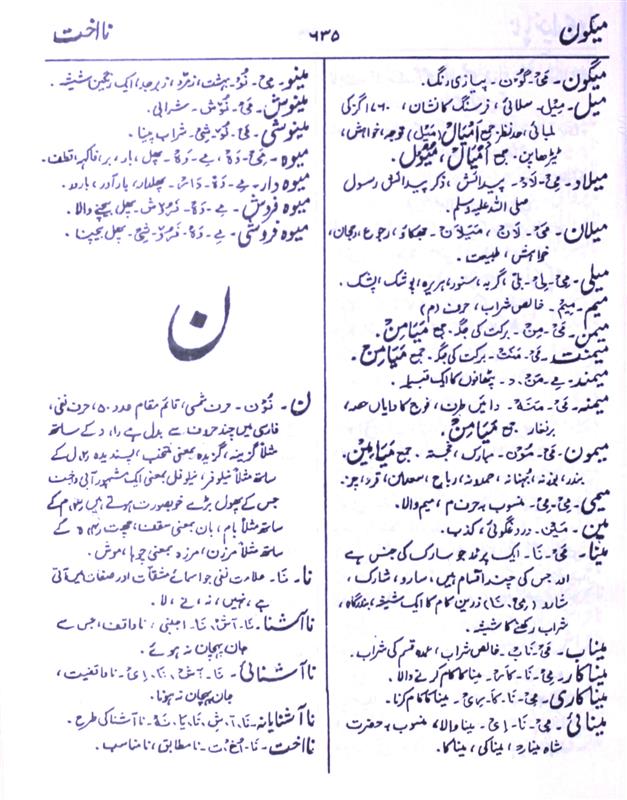 میگون
۶۳۵
نااخت
میگون۔ مَیْ۔ گُوْن۔ پیازی رنگ۔
میل۔ مِیْل۔ سلائی، فرسنگ کا نشان، ۱۷۶۰ گز کی
لمبائی، حدِ نظر جمع اَمْیَال (مَیْل) توجہ، خواہش،
ٹیڑھاپن۔ جمع اَمْیَال، مُیُوْل۔
میلاد۔ مِیْ۔ لَادْ۔ پیدائش، ذکر پیدائش رسول
صلی اللہ علیہ وسلم۔
میلان۔ مَیْ۔ لَانْ، مَیَلَانْ۔ جھکاؤ، رجوع، رجحان،
خواہش، طبیعت۔
میلی۔ مِیْ۔ لِیْ۔ بلی، گربہ، سنور، ہریرہ، پوشک، پشک۔
میم۔ مِیْمْ۔ خالص شراب، حرف (م)
میمن۔ مَیْ۔ مَنْ۔ برکت کی جگہ۔ جمع مَیَامِنْ۔
میمنت۔ مَیْ۔ مَنَتْ۔ برکت کی جگہ۔ جمع مَیَامِنْ۔
میمند۔ مے۔ مَنْ۔ د۔ پٹھانوں کا ایک قبیلہ۔
میمنہ۔ مَیْ۔ مَنَہْ۔ دائیں طرف، فوج کا دایاں حصہ،
برنغار۔ جمع مَیَامِنْ۔
میمون۔ مَیْ۔ مُوْن۔ مبارک، خجستہ۔ جمع مَیَامِیْن۔
بندر، بوزنہ،
میمی۔ مِیْ۔ مِیْ۔ منسوب بہ حرف م، میم والا۔
مین۔ مَیْن۔ دروغگوئی، کذب۔
مینا۔ مَیْ۔ نَا۔ ایک پرند جو سارک کی جنس ہے
اور جس کی چند اقسام ہیں، سارو، شارک،
شارد (مِیْ۔ نَا) زریں کام کا ایک شیشہ، بندرگاہ،
شراب رکھنے کا شیشہ۔
میناب۔ مَیْ۔ نَابْ۔ خالص شراب، عمدہ قسم کی شراب۔
میناکار۔ مِیْ۔ نَا۔ کَارْ۔ مینا کا کام کرنے والا۔
میناکاری۔ مِیْ۔ نَا۔ کَا۔ رِیْ۔ مینا کا کام کرنا۔
مینائی۔ مِیْ۔ نَا۔ اِیْ۔ مینا والا، منسوب بہ حضرت
شاہ مینا رح، مینا کی، مینا کا۔
مینو۔ مِیْ۔ نُوْ۔ بہشت، زمرد، زبرجد، ایک رنگین شیشہ۔
مینوش۔ مَیْ۔ نُوْش۔ شرابی۔
مینوشی۔ مَیْ۔ نُوْ۔ شِیْ۔ شراب پینا۔
میوہ۔ مِیْ۔ وَہْ، مے۔ وَہْ۔ پھل، بار، بر، فاکہہ، قطف۔
میوہ دار۔ مے۔ وَہْ۔ دَارْ۔ پھلدار، بارآور، بارور۔
میوہ فروش۔ مے۔ وَہْ۔ فَرُوْش۔ پھل بیچنے والا۔
میوہ فروشی۔ مے۔ وَہْ۔ فَرُوْ۔ شِیْ۔ پھل بیچنا۔
ن
ن۔ نُوْن۔ حرف شمسی، قائم مقام عدد ۵۰، حرف نفی،
فارسی میں چند حروف سے بدل ہے (۱)، د کے ساتھ
مثلاً گزینہ، گزیدہ بمعنی منتخب، پسندیدہ (۲) ل کے
ساتھ مثلاً نیلوفر، نیلوفل بمعنی ایک مشہور آبی درخت
جس کے پھول بڑے خوبصورت ہوتے ہیں (۳) م کے
ساتھ مثلاً بام، بان بمعنی سقف، چھت (۴) ہ کے
ساتھ مثلاً مرزن، مرزہ بمعنی چوہا، موش۔
نا۔ نَا۔ علامت نفی جو اسمائے مشتقات اور صفات میں آتی
ہے، نہیں، نہ، نے، لا۔
ناآشنا۔ نَا۔ آشْ۔ نَا۔ اجنبی، ناواقف، جس سے
جان پہچان نہ ہوئے۔
ناآشنائی۔ نَا۔ آشْ۔ نَا۔ اِیْ۔ ناواقفیت،
جان پہچان نہ ہونا۔
ناآشنایانہ۔ نَا۔ آشْ۔ نَا۔ یَا۔ نَہْ۔ ناآشنا کی طرح۔
نااخت۔ نَا۔ اُخْ۔ تْ۔ نامطابق، نامناسب۔